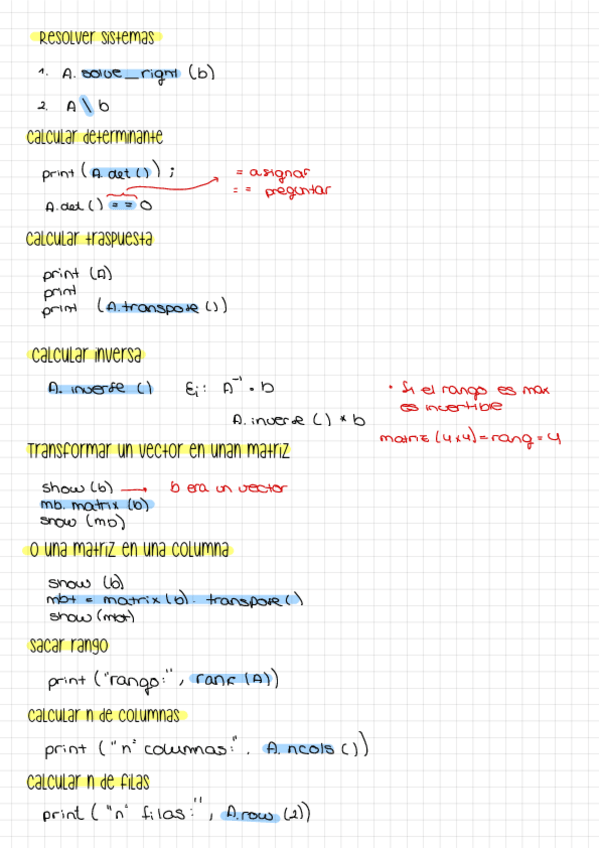 Resolver sistemas
1. A. solve_right (b)
2. A \ b
calcular determinante
print (A. det ()) ;
= asignar
== preguntar
A.det () == 0
calcular traspuesta
print (A)
print
print (A.transpose ())
calcular inversa
A. inverse () Ej: A⁻¹ · b
· Si el rango es max
es invertible
A. inverse () * b
matriz (4x4) = rang = 4
Transformar un vector en unan matriz
show (b) → b era un vector
mb. matrix (b)
show (mb)
O una matriz en una columna
show (b)
mbt = matrix (b) . transpose ()
show (mbt)
sacar rango
print ("rango:", rank (A))
calcular n de columnas
print ("n° columnas:". A. ncols ())
calcular n de filas
print ("n° filas:", A.row (2))